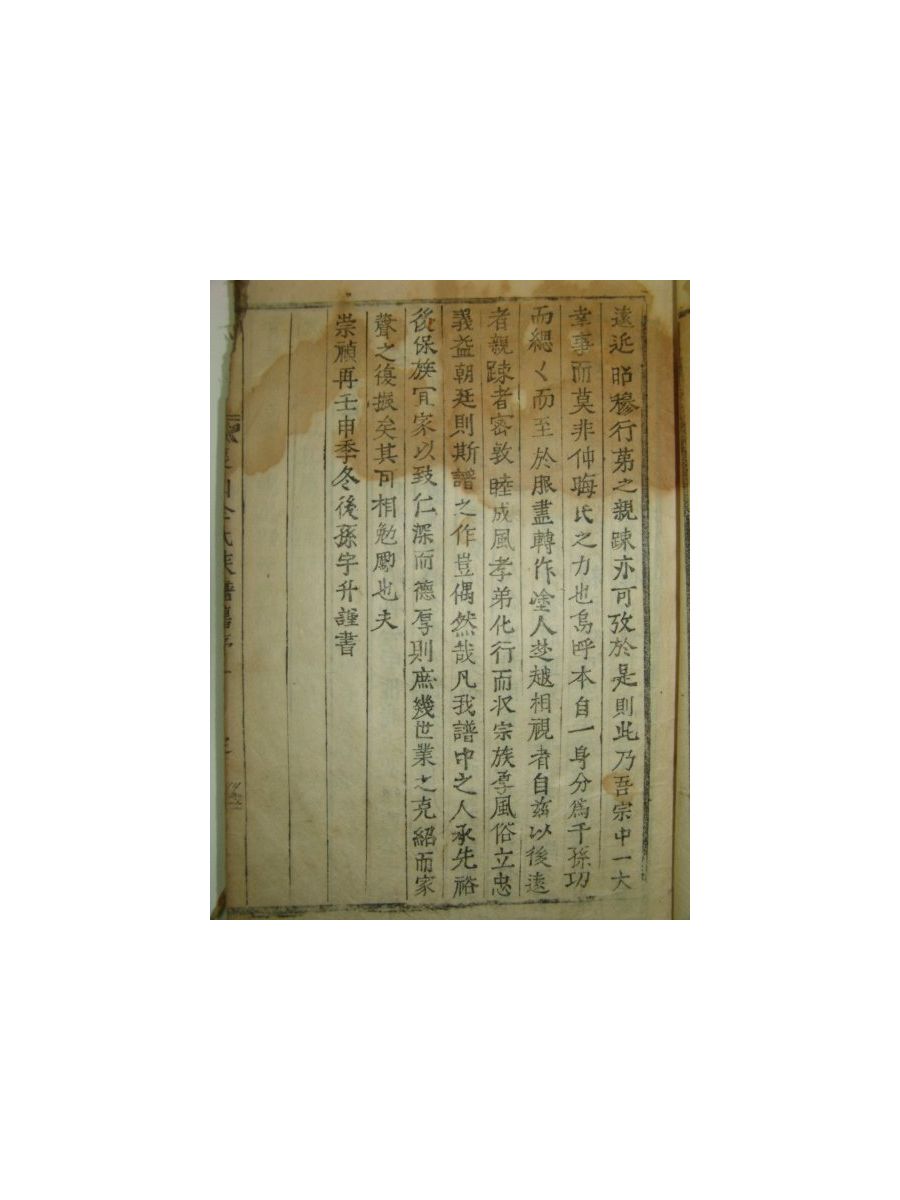 遠近昭穆行第之親踈亦可攷於是則此乃吾宗中一大
幸事而莫非仲晦氏之力也烏呼本自一身分爲千孫功
而緦〱而至於服盡轉作塗人楚越相視者自玆以後遠
者親踈者密敦睦成風孝弟化行而収宗族厚風俗立忠
義益朝廷則斯譜之作豈偶然哉凡我譜中之人承先裕
後保族冝家以致仁深而德厚則庶幾世業之克紹而家
聲之復振矣其可相勉勵也夫
崇禎再壬申季冬後孫宇升謹書
氏族譜舊序